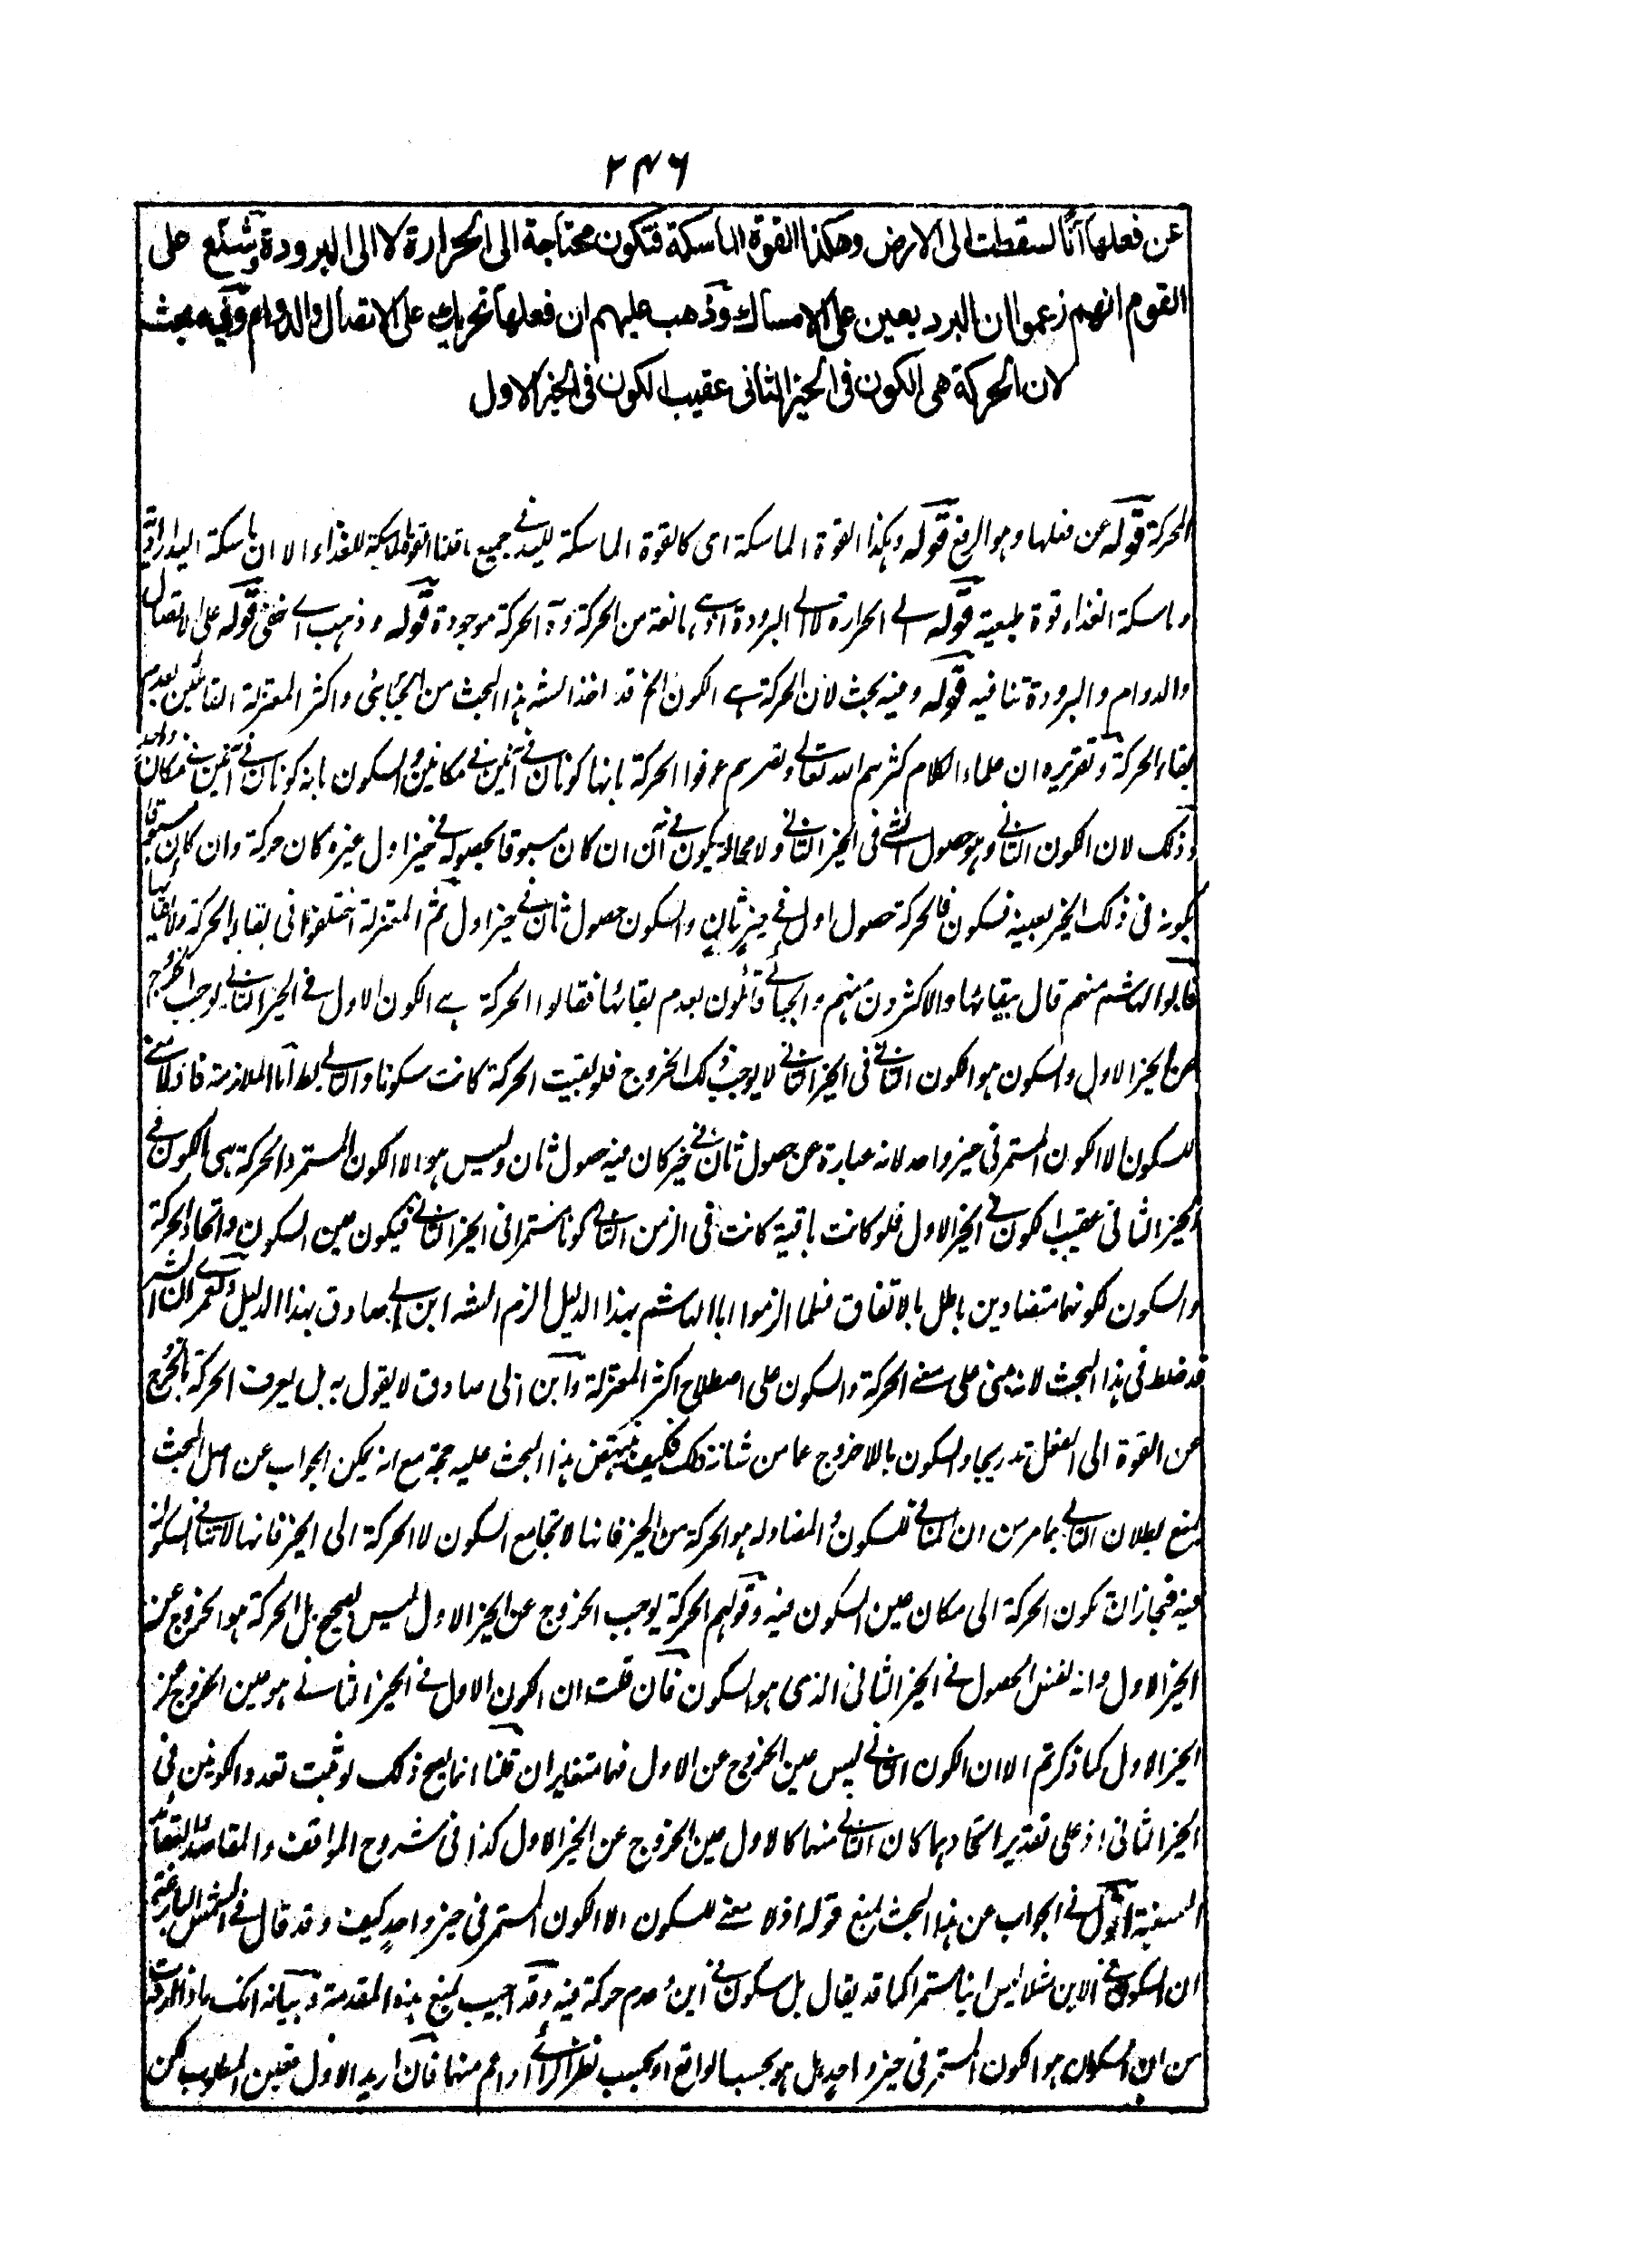 ۲۴۶
عن فعلها آنًا لسقطت الى الارض وهكذا القوة الماسكة فتكون محتاجة الى الحرارة لا الى البرودة وشنّع على
القوم انهم زعموا ان البرد يعين على الامساك وذهب عليهم ان فعلها تحريك على الاتصال والدوام وفيه بحث
لان الحركة هى الكون فى الحيز الثانى عقيب الكون فى الحيز الاول
المحركة قوله عن فعلها وهو الرفع قوله وهكذا القوة الماسكة اى كالقوة الماسكة لليد فى جميع ما قلنا القوة الماسكة للغذاء الا ان ماسكة اليد ارادية
وماسكة الغذاء قوة طبعية قوله الى الحرارة لا الى البرودة اذ هى مانعة من الحركة و الحركة موجودة قوله وذهب اى خفى قوله على الاتصال
والدوام والبرودة تنافيه قوله وفيه بحث لان الحركة هى الكون الخ قد اخذ الشه هذا البحث من الجبائى واكثر المعتزلة القائلين بعدم
بقاء الحركة وتقريره ان علماء الكلام كثرهم الله تعالى ونصرهم عرفوا الحركة بانها كونان فى آنين فى مكانين والسكون بانه كونان فى آنين فى مكان واحد
وذلك لان الكون الثانى وهو حصول الشئ فى الحيز الثانى ولا محالة يكون فى آن ان كان مسبوقا بحصوله فى حيز اول غيره كان حركة وان كان مسبوقا
بكونه فى ذلك الحيز بعينه فسكون فالحركة حصول اول فى حيز ثان والسكون حصول ثان فى حيز اول ثم المعتزلة اختلفوا فى بقاء الحركة ولا بقائها
فابو الهاشم منهم قال ببقائها والاكثرون منهم والجبائى قائلون بعدم بقائها فقالوا الحركة هى الكون الاول فى الحيز الثانى يوجب الخروج
عن الحيز الاول والسكون هو الكون الثانى فى الحيز الثانى لا يوجب ذلك الخروج فلو بقيت الحركة كانت سكونا والتالى بط اما الملازمة فاذ لا معنى
للسكون الا الكون المستمر فى حيز واحد لانه عبارة عن حصول ثان فى حيز كان فيه حصول ثان وليس هو الا الكون المستمر والحركة هى الكون فى
الحيز الثانى عقيب الكون فى الحيز الاول فلو كانت باقية كانت فى الزمن الثانى كونا مستمرا فى الحيز الثانى فيكون عين السكون واتحاد الحركة
والسكون لكونهما متضادين باطل بالاتفاق فلما الزموا ابا الهاشم بهذا الدليل الزم الشه ابن ابى صادق بهذا الدليل ولعمرى ان الشه
قد ضلط فى هذا البحث لانه مبنى على معنى الحركة والسكون على اصطلاح اكثر المعتزلة وابن ابى صادق لا يقول به بل يعرف الحركة بالخروج
عن القوة الى الفعل تدريجا والسكون باللاخروج عما من شانه ذلك فكيف ينتهض هذا البحث عليه حجة مع انه يمكن الجواب عن اصل البحث
بمنع بطلان التالى بما مر من ان المنافى للسكون والمضاد له هو الحركة من الحيز فانها لا تجامع السكون لا الحركة الى الحيز فانها لا تنافى السكون
فيه فجاز ان تكون الحركة الى مكان عين السكون فيه وقولهم الحركة يوجب الخروج عن الحيز الاول ليس بصحيح بل الحركة هو الخروج عن
الحيز الاول وانه نفس الحصول فى الحيز الثانى الذى هو السكون فان قلت ان الكون الاول فى الحيز الثانى هو عين الخروج عن
الحيز الاول كما ذكرتم الا ان الكون الثانى ليس عين الخروج عن الاول فهما متغايران قلنا انما يصح ذلك لو ثبت تعدد الكونين فى
الحيز الثانى اذ على تقدير اتحادهما كان الثانى منهما كالاول عين الخروج عن الحيز الاول كذا فى شروح المواقف والمقاصد
اقول فى الجواب عن هذا البحث بمنع قوله اذ لا معنى للسكون الا الكون المستمر فى حيز واحد كيف وقد قال فى الشمس البازغة
ان السكون فى الاين مثلا ليس اينا مستمرا كما قد يقال بل سكون فى اين عدم حركة فيه وقد اجيب بمنع هذه المقدمة وبيانه انك ماذا اردت
من ان السكون هو الكون المستمر فى حيز واحد بل هو بحسب الواقع او بحسب نظر الرائى او اعم منهما فان اريد الاول فعين المطلوب لكن